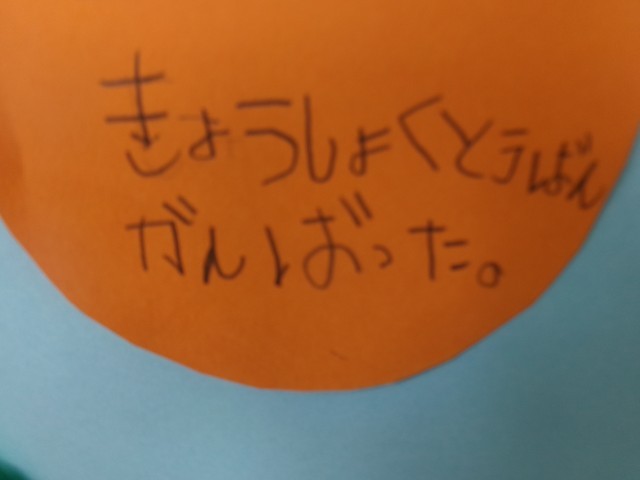 きょうしょくとうばん
がんばった。